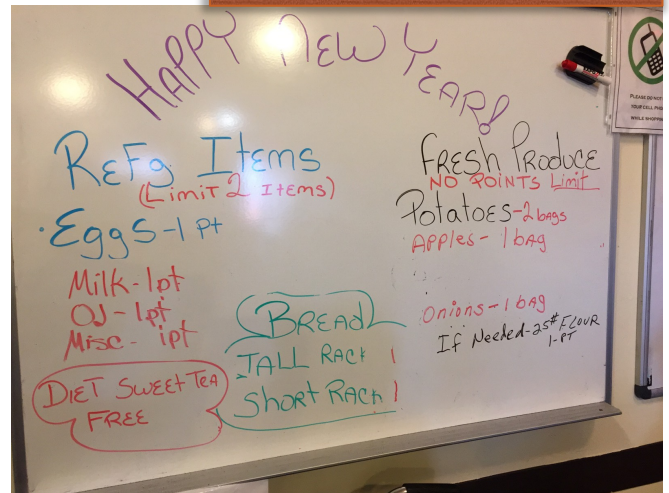 HAPPY NEW YEAR!
RefG Items
(Limit 2 Items)
·Eggs-1 pt
Milk-1pt
OJ-1pt
Misc- 1pt
DIET SWEET TEA
FREE
BREAD
TALL RACK 1
Short Rack 1
FRESH PRODUCE
NO POINTS Limit
Potatoes-2 bags
Apples- 1 bag
Onions-1 bag
If Needed-25# FLOUR
1-PT
PLEASE DO NOT
YOUR CELL PHO
WHILE SHOPPIN